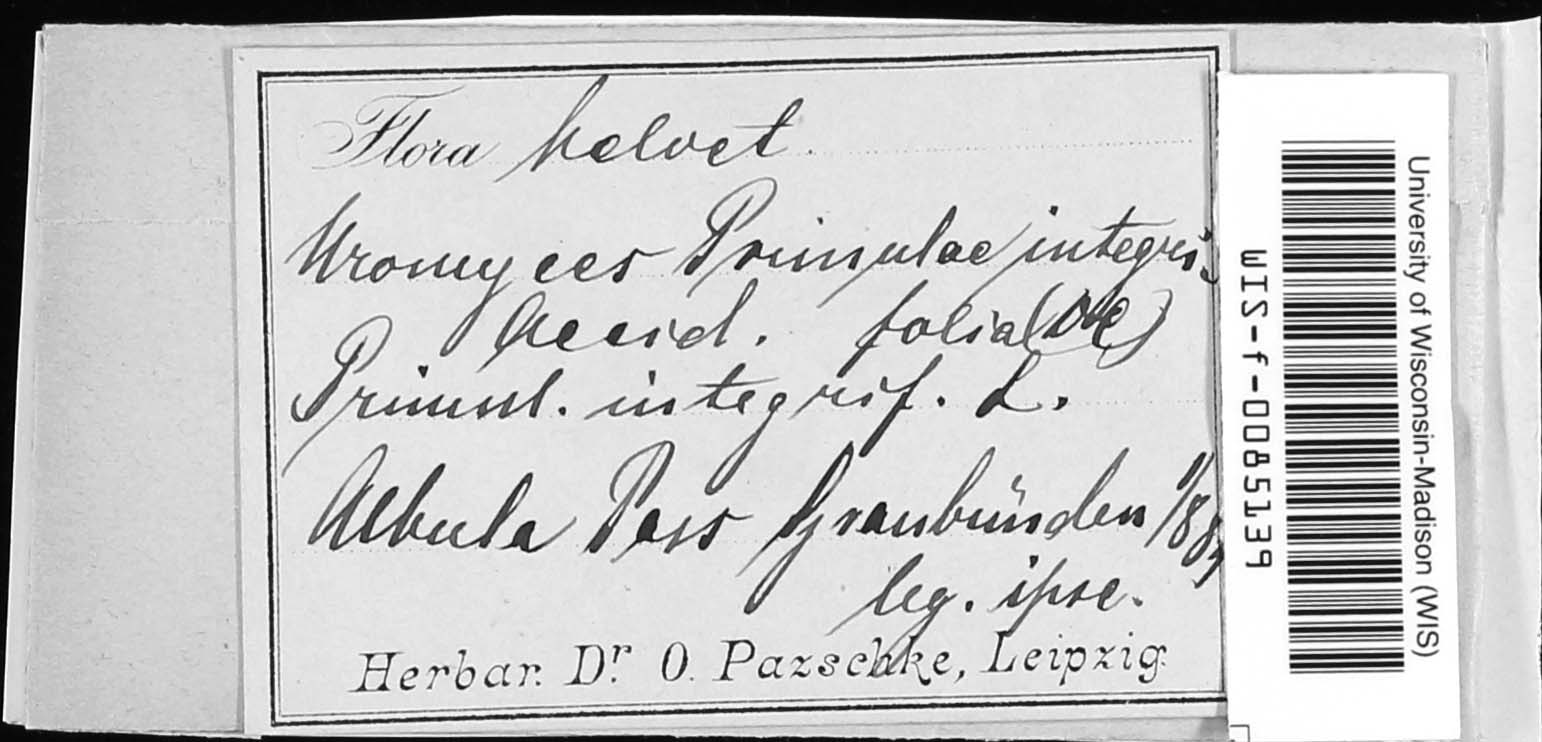 Flora helvet.
Uromyces Primulae integri-
Aecid. folia (DC)
Primul. integrif. L.
Albula Pass Graubünden
leg. ipse.
Herbar. Dr. O. Pazschke, Leipzig.
University of Wisconsin-Madison (WIS)
WIS-f-0085139